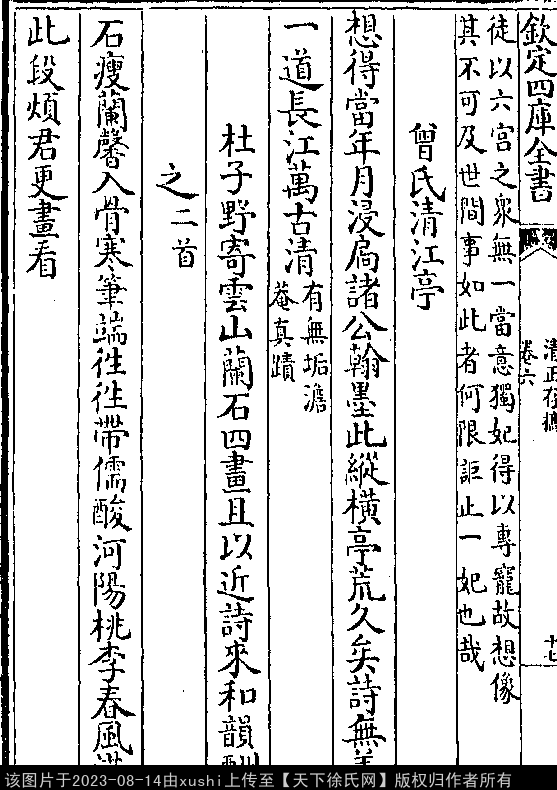 欽定四庫全書
清正存稿
卷六
十七
徒以六宫之衆無一當意獨妃得以專寵故想像
其不可及世間事如此者何限詎止一妃也哉
曾氏清江亭
想得當年月浸扃諸公翰墨此縱横亭荒久矣詩無
一道長江萬古清
有無垢澹
菴真蹟
杜子野寄雲山蘭石四畫且以近詩來和韻
之二首
石瘦蘭馨入骨寒筆端徃徃帶儒酸河陽桃李春風
此段煩君更畫看
该图片于2023-08-14由xushi上传至【天下徐氏网】版权归作者所有